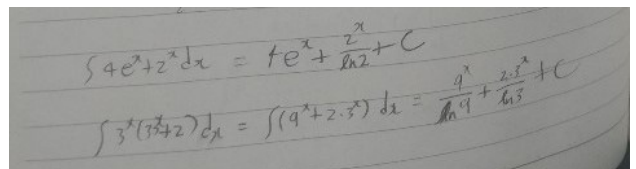 ∫4eˣ+2ˣdx = 4eˣ + 2ˣ/ln2 + C
∫3ˣ(3ˣ+2)dx = ∫(9ˣ+2·3ˣ) dx = 9ˣ/ln9 + 2·3ˣ/ln3 + C